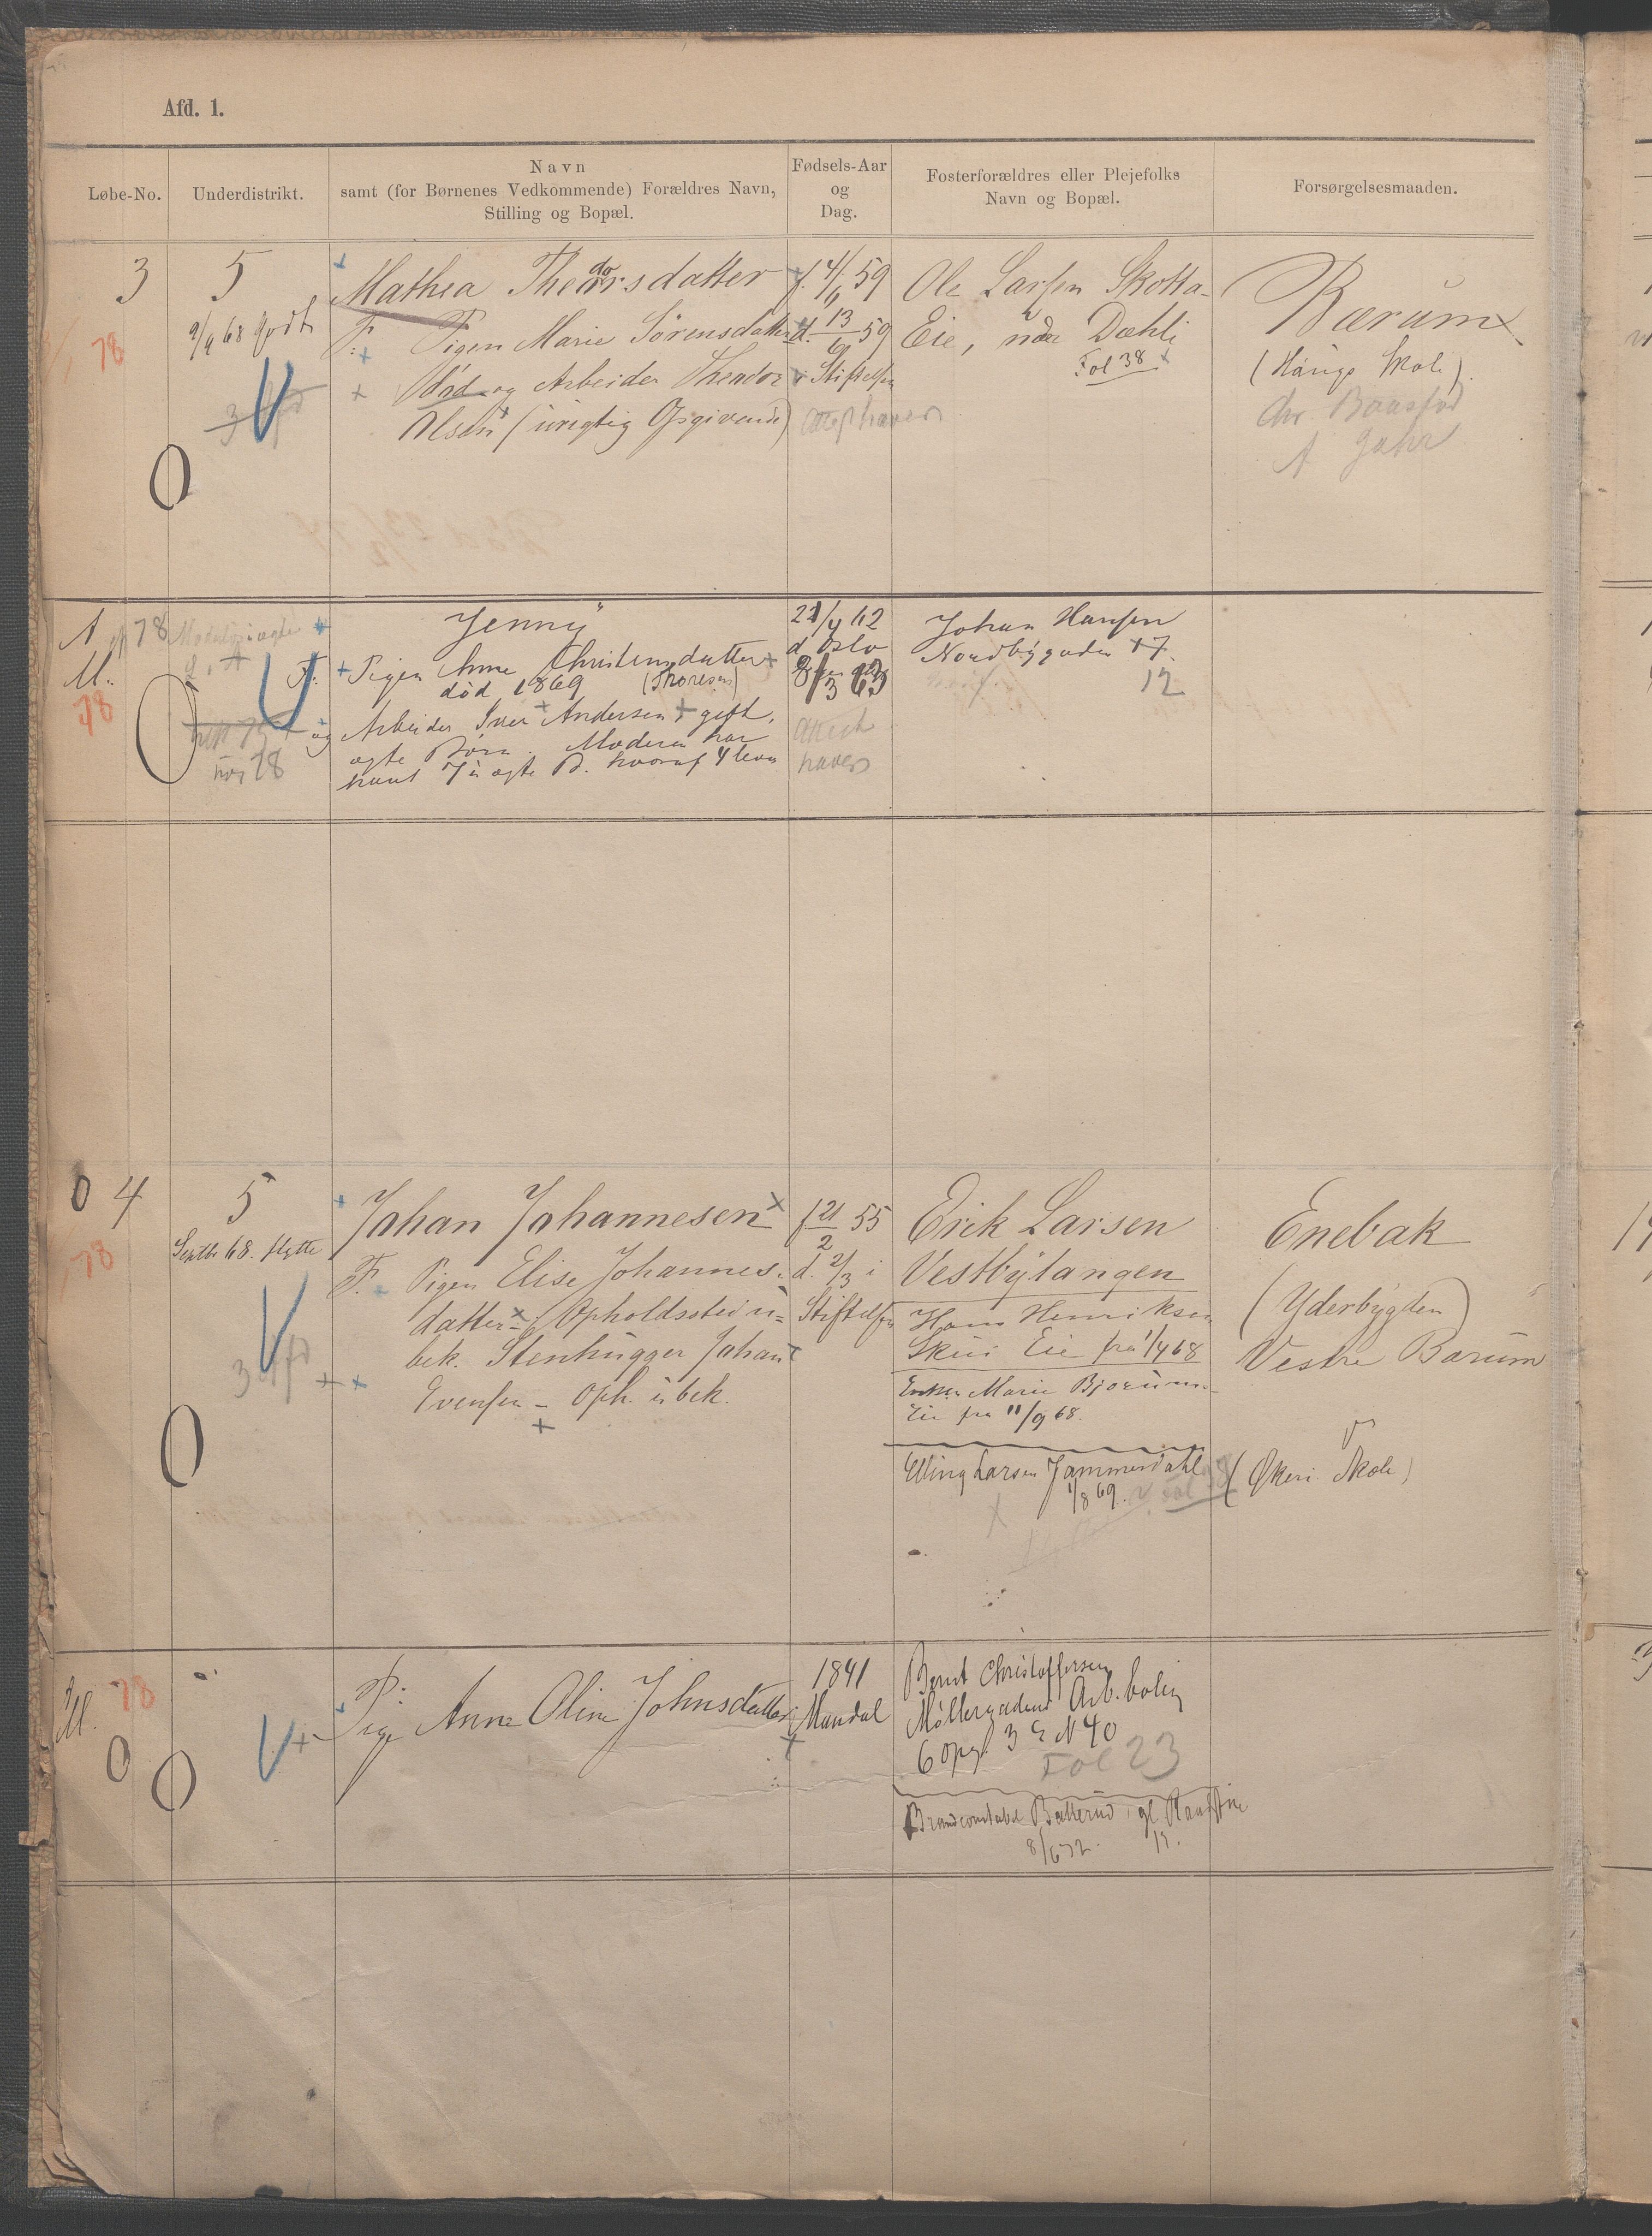 Afd. 1.
Løbe-No.
Underdistrikt.
Navn
samt (for Børnenes Vedkommende) Forældres Navn,
Stilling og Bopæl.
Fødsels-Aar
og
Dag.
Fosterforældres eller Plejefolks
Navn og Bopæl.
Forsørgelsesmaaden.
3
78
5
9/9 68 godt
Mathea Theodorsdatter
F: Pigen Marie Sörensdatter
död og Arbeider Theodor
Olsen (urigtig Opgivende)
f. 4/6 59
d. 13/6 59
i Stiftelsen
Attest haves
Ole Larsen Skotta-
Eie, under Dæhli
Fol 38
Bærum
(Haugs Skole).
Chr.
A
M.
78
78
Nov 78
Jenny
F: Pigen Anne Christensdatter
död 1869 (Thoresen)
og Arbeider Iver Andersen, gift,
ægte Börn. Moderen har
havt 7 u ægte B. hvoraf 4 leve
21/4 62
d Oslo
8/3 63
Attest
haves
Johan Hansen
Nordbygaden 17.
12
0 4
78
5
Septb 68. flytte
Johan Johannesen
F. Pigen Elise Johannes-
datter - Opholdssted u=
bek. Stenhugger Johan
Evensen - Oph. ubek.
f 21/2 55
d. 2/3 i
Stiftelsen
Erik Larsen
Vestbylangen
Hans Henriksen
Skui Eie fra 1/4 68
Enken Marie Bjorum-
Eie fra 11/9 68.
Elling Larsen Jammerdahl
1/8 69.
Enebak
(Yderbygden)
Vestre Barum
(Skui Skole)
M.
78
0
Pige Anne Oline Johnsdatter
1841
Mandal
Bernt Christoffersen
Möllergadens Arb. bolig
6 opg. 3 E N 40
Fol 23
Brandconstabel Bætterud, gl. Raadstue
8/6 72. 19.